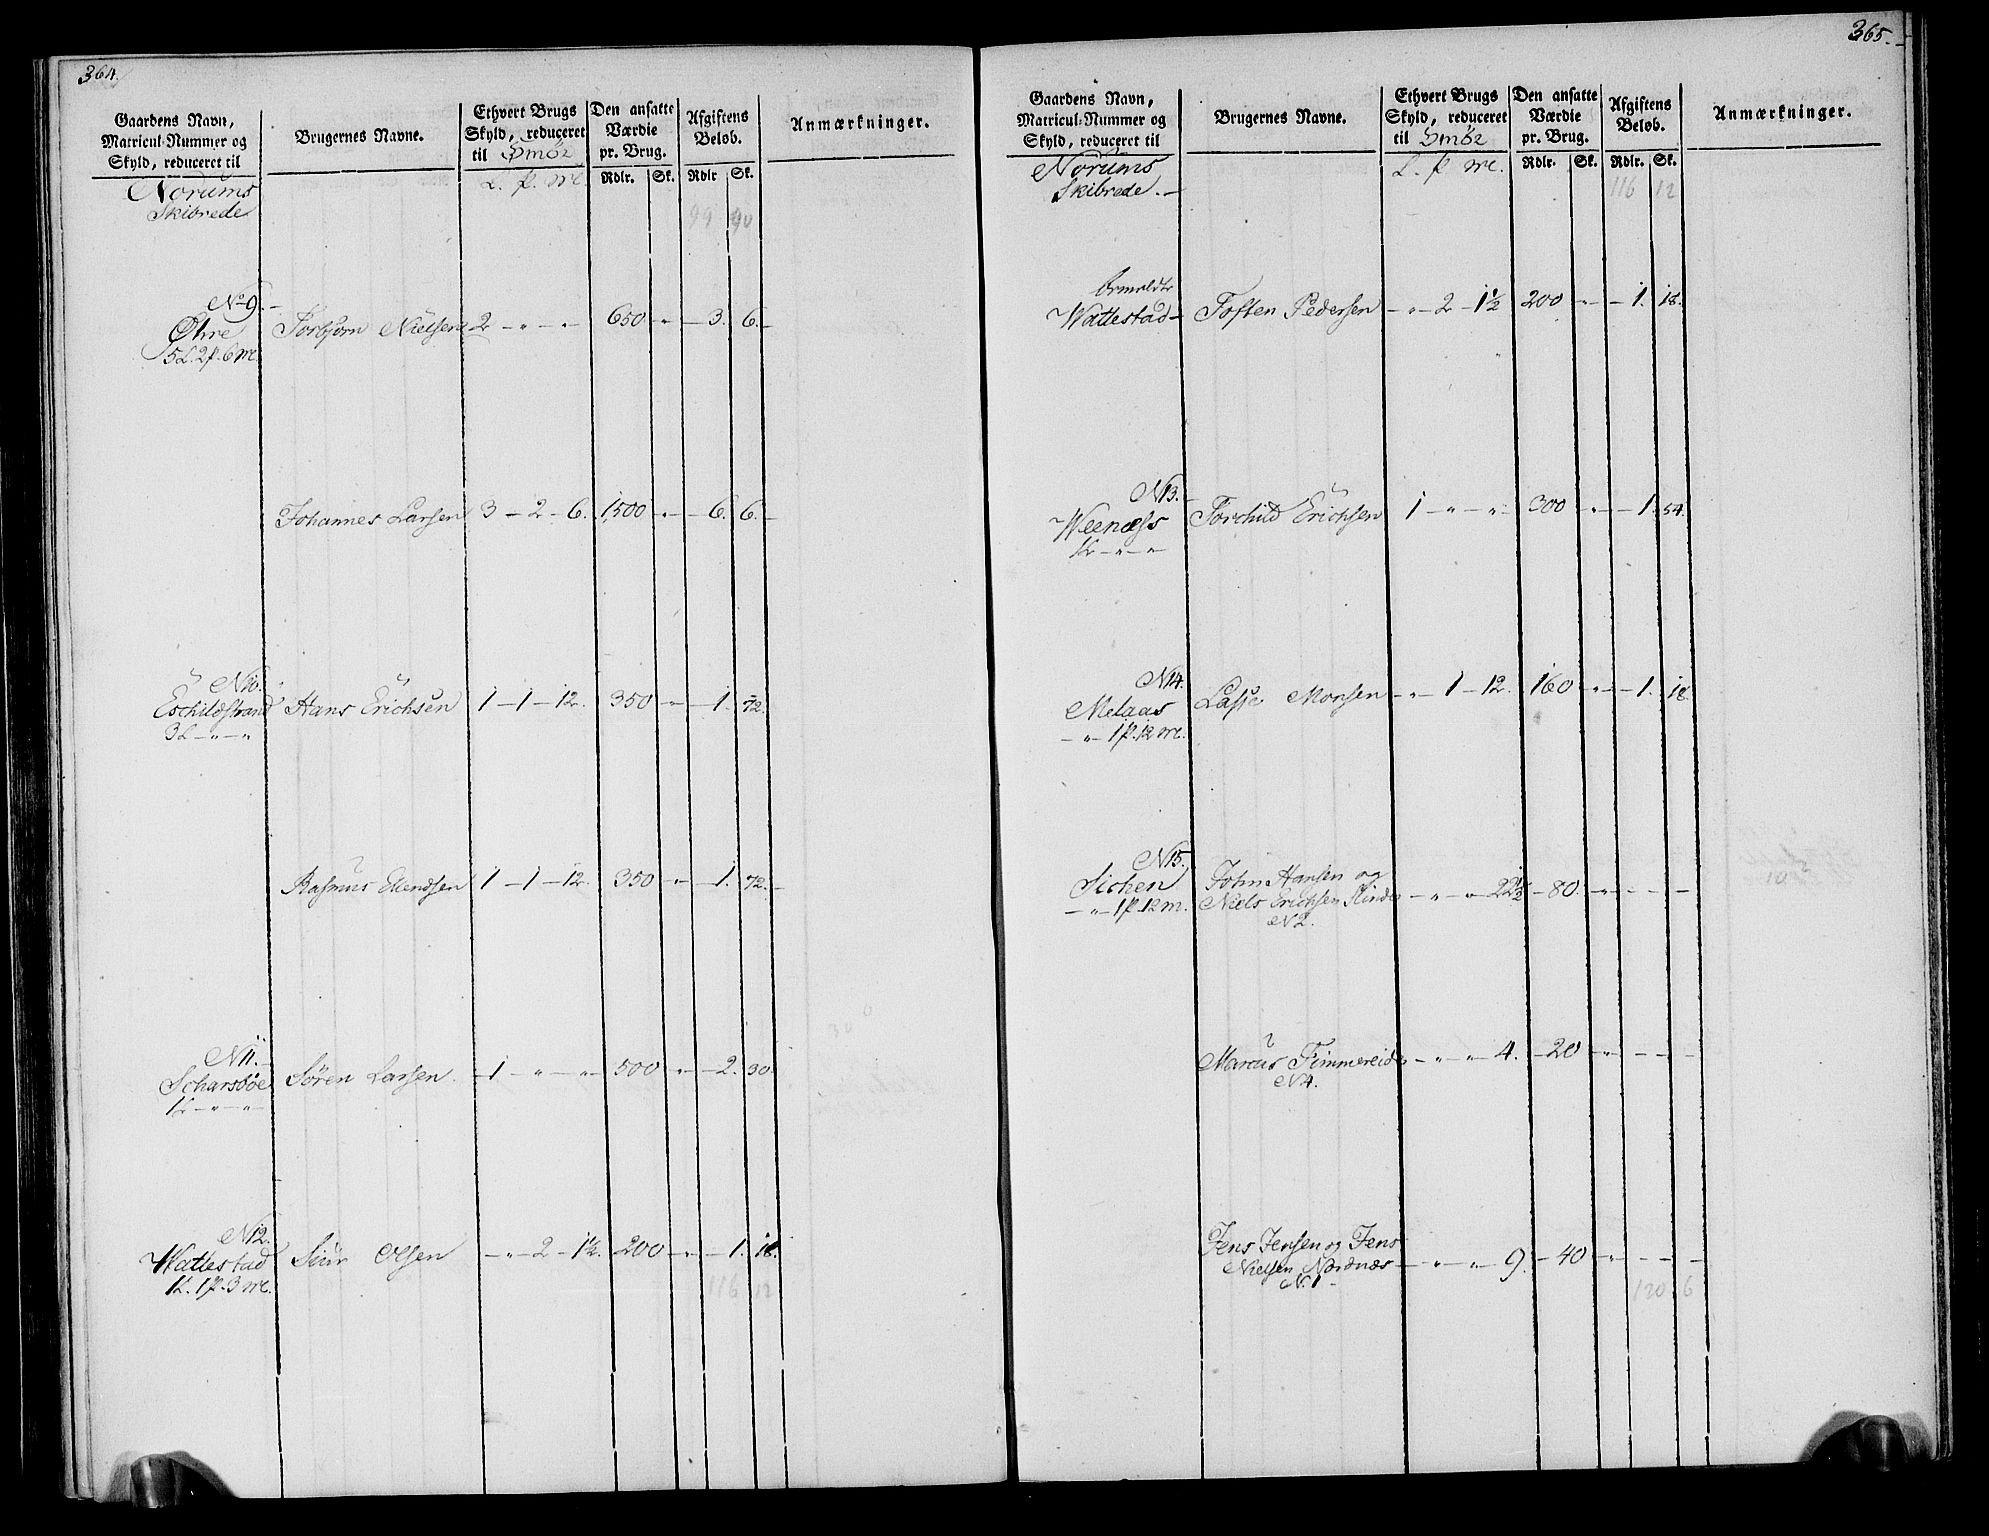 364.
Gaardens Navn, Matricul-Nummer og Skyld, reduceret til
Brugernes Navne.
Ethvert Brugs Skyld, reduceret til Smör
Den ansatte Værdie pr. Brug.
Afgiftens Beløb.
Anmærkninger.
Norums Skibrede
L. p. mc.
Rdlr. Sk. Rdlr Sk.
99 90
No 9.
Øhre Torbjörn Nielsen 2 - " - " 650 " - 3. 6.
5 L. 2 p. 6 mc.
Johannes Larsen 3 - 2 - 6. 1,500 " - 6. 6.
N 10.
Eschildstrand Hans Erichsen 1 - 1 - 12. 350 " - 1. 72.
3 L - " - "
Rasmus Elendsen 1 - 1 - 12. 350 " - 1. 72.
N 11.
Scharsböe Sören Larsen 1 - " - " 500 " - 2. 30.
1 L - " - "
N 12.
Wattestad Siur Olsen - " - 2 - 1½. 200 " - 1. 18.
1 L. 1 p. 3 mc.
116 12
365.
Gaardens Navn, Matricul-Nummer og Skyld, reduceret til
Brugernes Navne.
Ethvert Brugs Skyld, reduceret til Smör
Den ansatte Værdie pr. Brug.
Afgiftens Beløb.
Anmærkninger.
Norums Skibrede.
L. p. mc.
Rdlr. Sk. Rdlr. Sk.
116 12
Wattestad Tosten Pedersen - " - 2 - 1½ 200 " - 1. 18.
N 13.
Weenæss Torchild Erichsen 1 - " - " 300 " - 1. 54.
1 L - " - "
N 14.
Melaas Lasse Monsen - " - 1 - 12. 160 " - 1. 18
- " - 1 p. 12 mc.
N 15.
Sichen John Hansen og
- " - 1 p. 12 m. Niels Erichsen Slinde - " - " - 22½ - 80. " - - -
N 2.
Marcus Timmereide - " - " 4. - 20 " - - -
N 4.
Jens Jensen og Jens
Nielsen Nordnæs - " - " 9. - 40 " - - -
N. 1 -
120 6